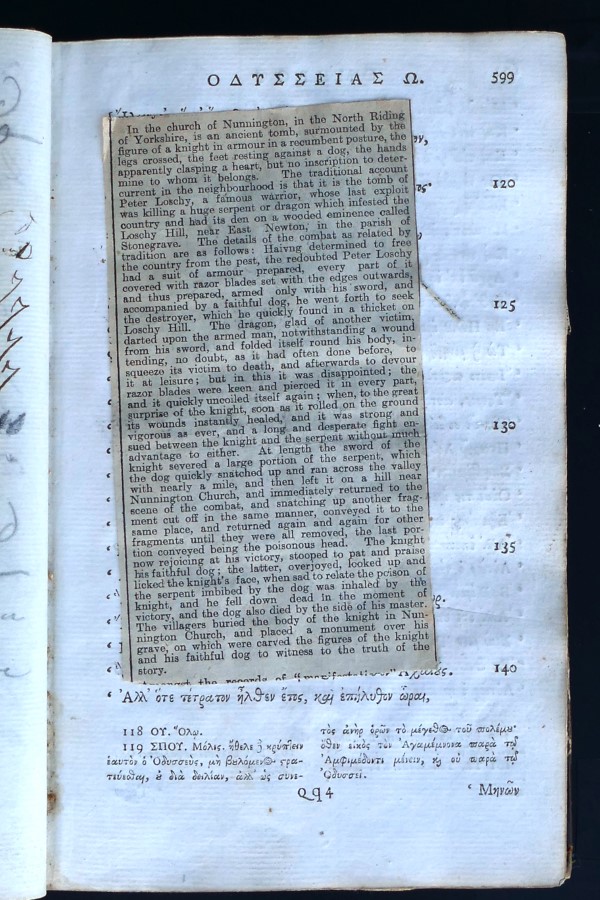 ΟΔΥΣΣΕΙΑΣ Ω. 599
In the church of Nunnington, in the North Riding
of Yorkshire, is an ancient tomb, surmounted by the
figure of a knight in armour in a recumbent posture, the
legs crossed, the feet resting against a dog, the hands
apparently clasping a heart, but no inscription to deter-
mine to whom it belongs. The traditional account
current in the neighbourhood is that it is the tomb of
Peter Loschy, a famous warrior, whose last exploit
was killing a huge serpent or dragon which infested the
country and had its den on a wooded eminence called
Loschy Hill, near East Newton, in the parish of
Stonegrave. The details of the combat as related by
tradition are as follows: Haivng determined to free
the country from the pest, the redoubted Peter Loschy
had a suit of armour prepared, every part of it
covered with razor blades set with the edges outwards,
and thus prepared, armed only with his sword, and
accompanied by a faithful dog, he went forth to seek
the destroyer, which he quickly found in a thicket on
Loschy Hill. The dragon, glad of another victim,
darted upon the armed man, notwithstanding a wound
from his sword, and folded itself round his body, in-
tending, no doubt, as it had often done before, to
squeeze its victim to death, and afterwards to devour
it at leisure; but in this it was disappointed; the
razor blades were keen and pierced it in every part,
and it quickly uncoiled itself again; when, to the great
surprise of the knight, soon as it rolled on the ground
its wounds instantly healed, and it was strong and
vigorous as ever, and a long and desperate fight en-
sued between the knight and the serpent without much
advantage to either. At length the sword of the
knight severed a large portion of the serpent, which
the dog quickly snatched up and ran across the valley
with nearly a mile, and then left it on a hill near
Nunnington Church, and immediately returned to the
scene of the combat, and snatching up another frag-
ment cut off in the same manner, conveyed it to the
same place, and returned again and again for other
fragments until they were all removed, the last por-
tion conveyed being the poisonous head. The knight
now rejoicing at his victory, stooped to pat and praise
his faithful dog; the latter, overjoyed, looked up and
licked the knight's face, when sad to relate the poison of
the serpent imbibed by the dog was inhaled by the
knight, and he fell down dead in the moment of
victory, and the dog also died by the side of his master.
The villagers buried the body of the knight in Nun-
nington Church, and placed a monument over his
grave, on which were carved the figures of the knight
and his faithful dog to witness to the truth of the
story.
120
125
130
135
140
‘ Ἀλλ' ὅτε τέτρατον ἦλθεν ἔτος, καὶ ἐπήλυθον ὧραι,
118 ΟΥ. Ὅλῳ.
119 ΣΠΟΥ. Μόλις. ἤθελε κρύπτειν
ἑαυτὸν ὁ Ὀδυσσεὺς, μὴ βουλόμενος στρα-
τεύεσθαι, οὐ διὰ δειλίαν, ἀλλ' ὡς συνε-
τὸς ἀνὴρ ὁρῶν τὸ μέγεθος τοῦ πολέμου·
ὅθεν εἰκὸς τὸν Ἀγαμέμνονα παρὰ τῷ
Ἀμφιμέδοντι μένειν, καὶ οὐ παρὰ τῷ
Ὀδυσσεῖ.
Qq4
‘ Μηνῶν